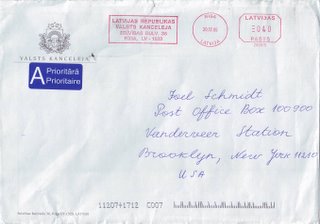 LATVIJAS REPUBLIKAS
VALSTS KANCELEJA
BRĪVĪBAS BULV. 36
RĪGA, LV-1520
RĪGA
LATVIJA
LATVIJAS
0040
PASTS
VALSTS KANCELEJA
A Prioritārā
Prioritaire
Joel Schmidt
Post Office Box 100900
Vanderveer Station
Brooklyn, New York 11210
USA
11207+1712 C007